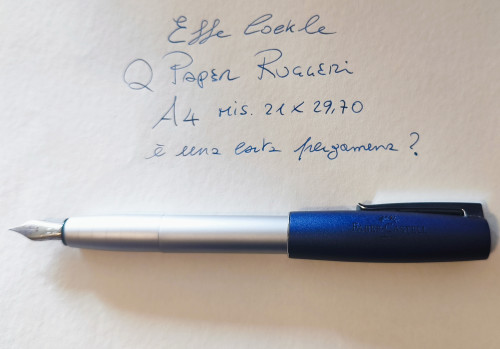 Effe Cockle
Q Paper Ruggeri
A4 mis. 21 x 29,70
è una carta pergamena?